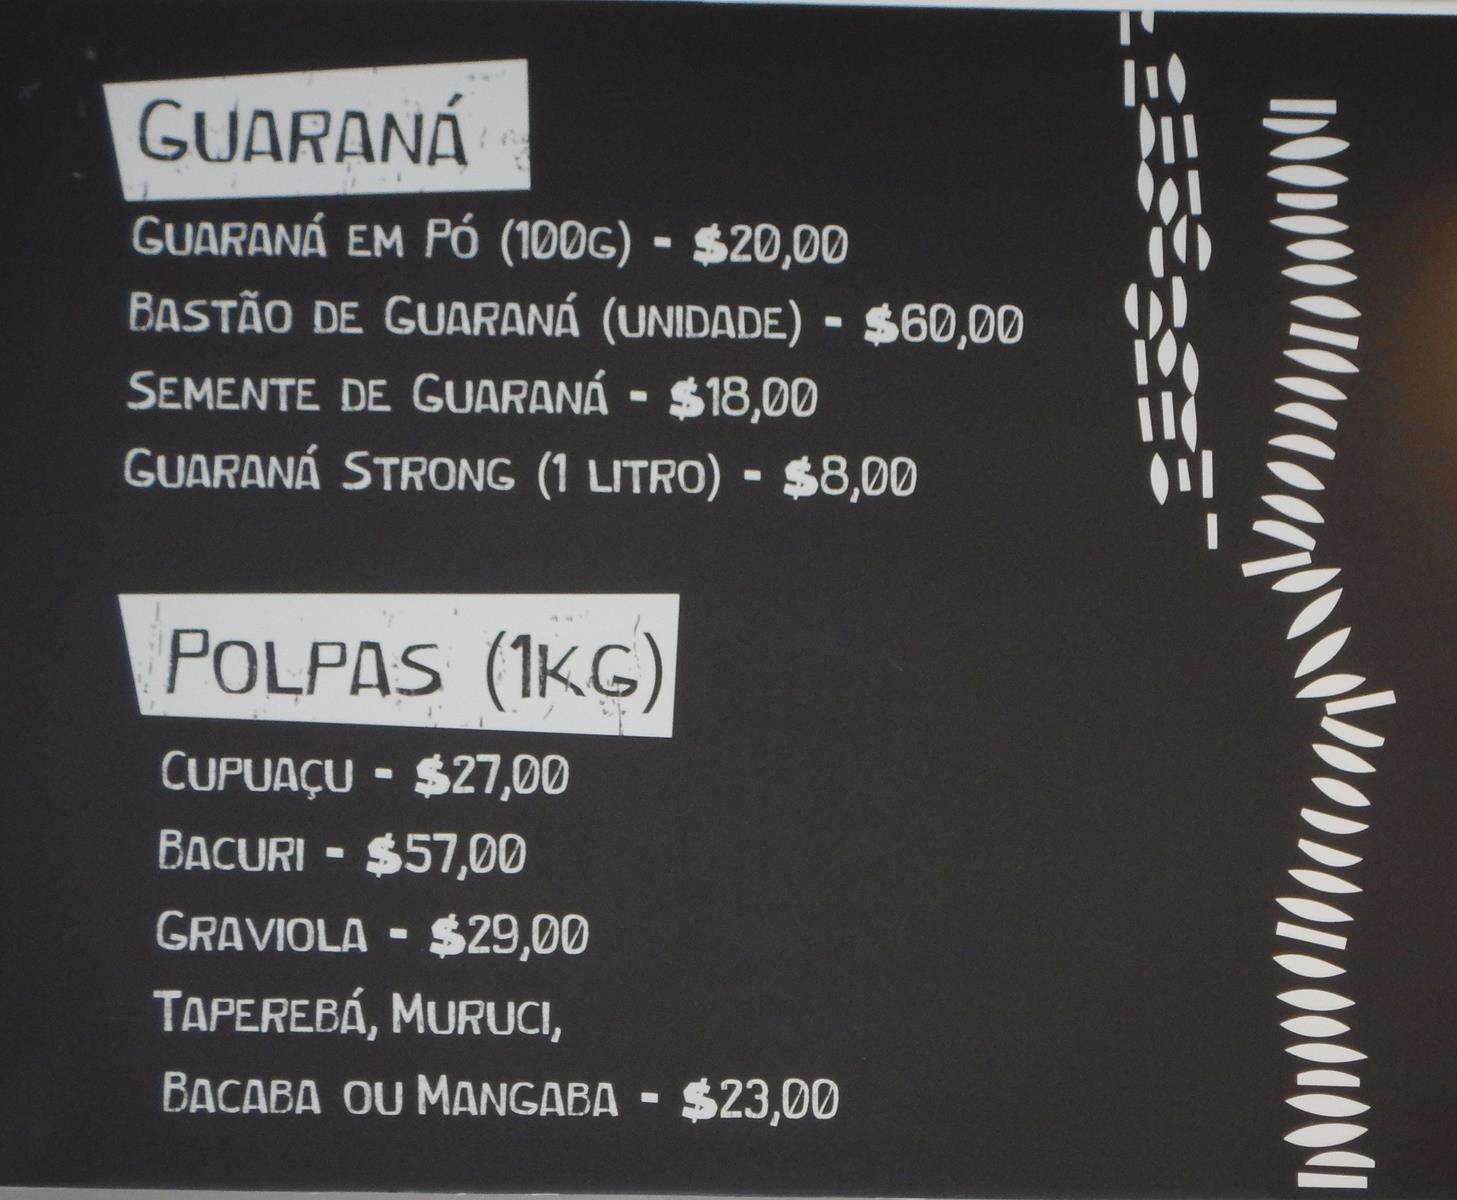 GUARANÁ
GUARANÁ EM PÓ (100G) - $20,00
BASTÃO DE GUARANÁ (UNIDADE) - $60,00
SEMENTE DE GUARANÁ - $18,00
GUARANÁ STRONG (1 LITRO) - $8,00
POLPAS (1KG)
CUPUAÇU - $27,00
BACURI - $57,00
GRAVIOLA - $29,00
TAPEREBÁ, MURUCI,
BACABA OU MANGABA - $23,00